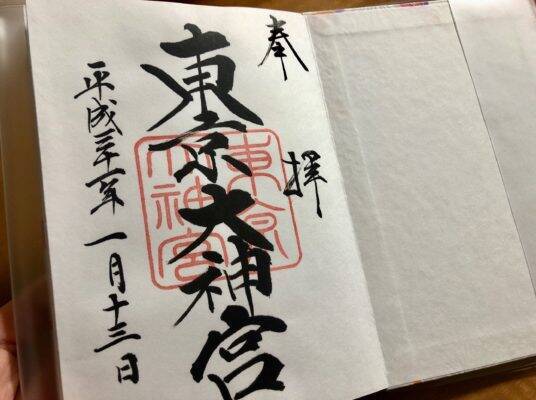 奉拝
東京大神宮
東京
大神宮
平成三十一年一月十三日